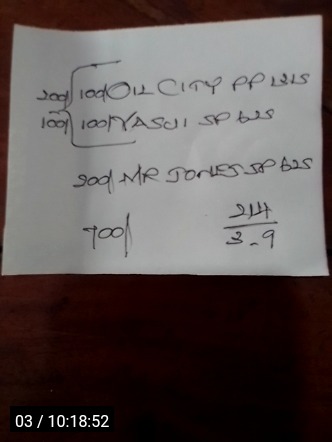 200/ 100/ OIL CITY PP 1215
100/ 100/ YASUI SP 625
200/ MR JONES SP 625
700/
214
3-9
03 / 10:18:52